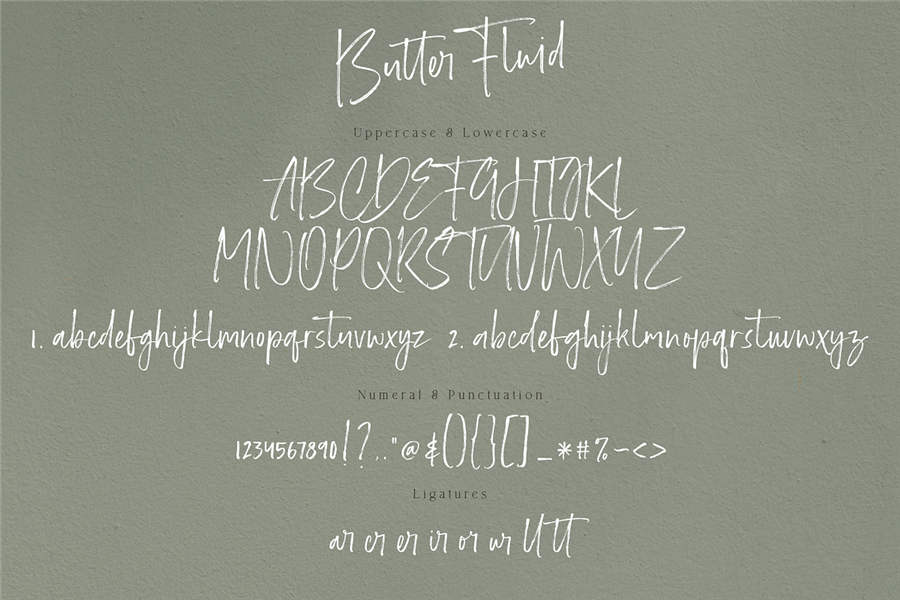 Butter Fluid
Uppercase & Lowercase
ABCDEFGHIJKL
MNOPQRSTUVWXYZ
1. abcdefghijklmnopqrstuvwxyz 2. abcdefghijklmnopqrstuvwxyz
Numeral & Punctuation
1234567890!?.."@&(){}[]_*#%~<>
Ligatures
ar cr er ir or ur ll tt